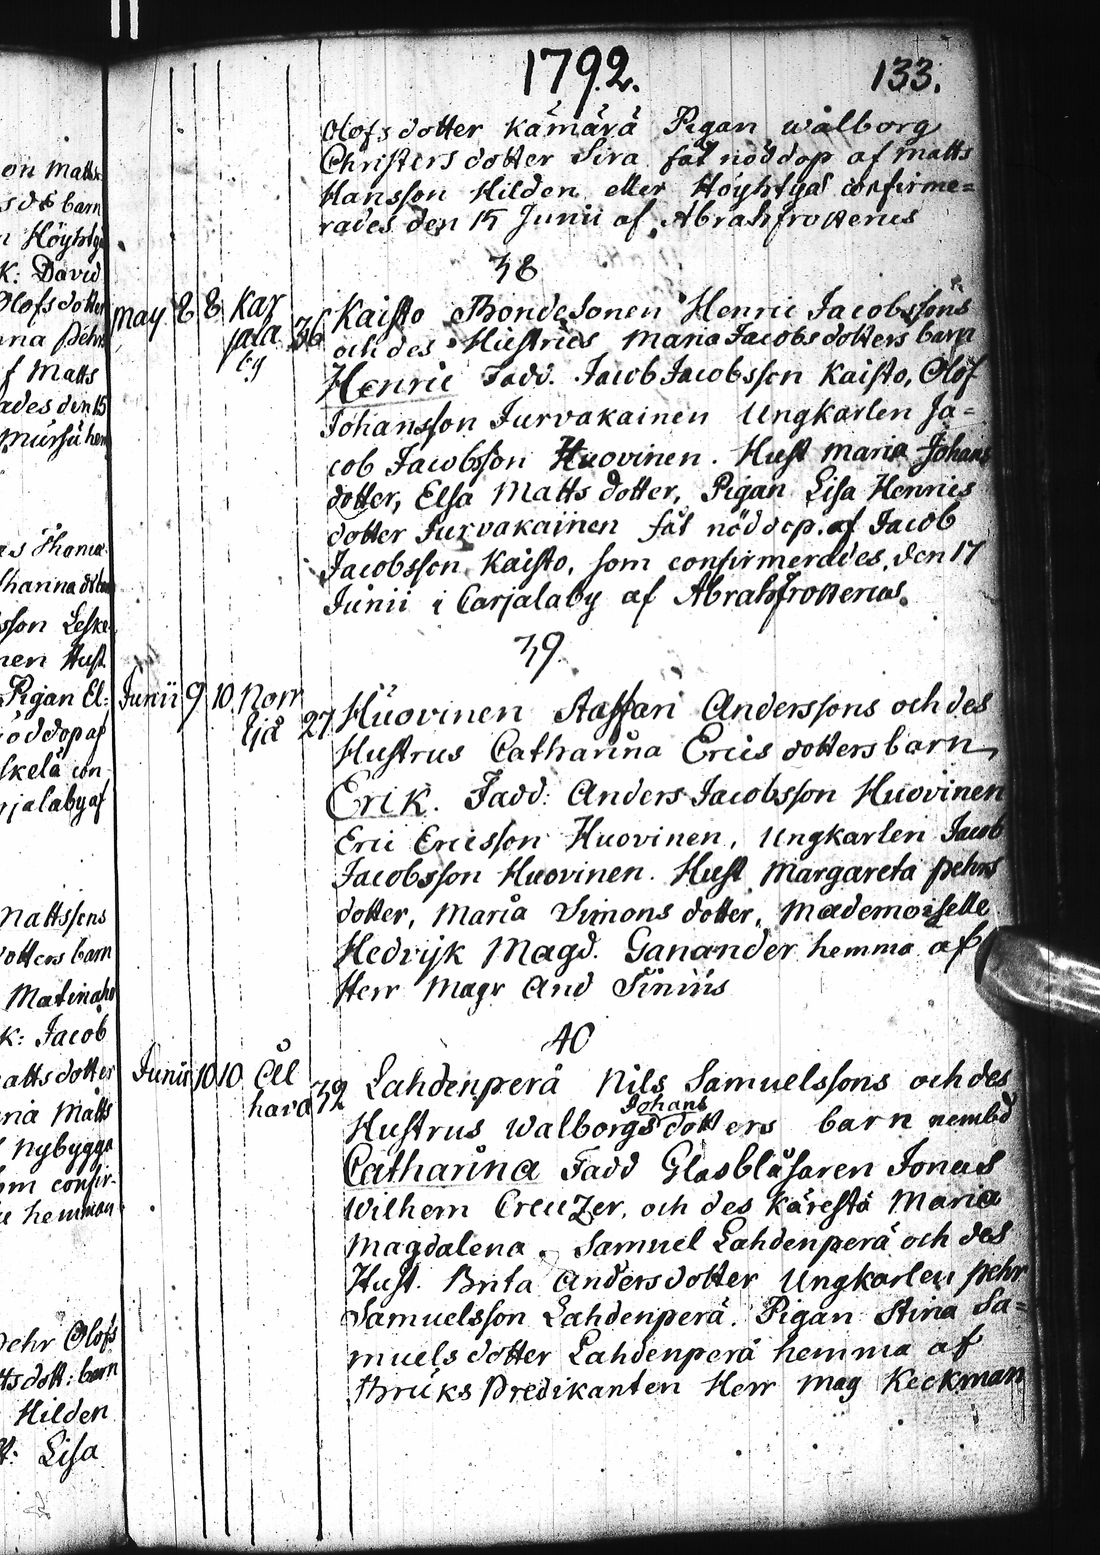 1792. 133.
Olofs dotter Kämärä Pigan Walborg
Christers dotter Sira fåt nöddop af Matts
Hansson Hilden eller Höyhtyä confirme=
rades den 15 Junii af Abrah Frosterus
38
May 8 8 Kar jala by 36 Kaisto Bondesonen Henric Jacobssons
och des Hustrus Maria Jacobs dotters barn
Henric Fadd. Jacob Jacobsson Kaisto, Olof
Johansson Jurvakainen Ungkarlen Ja=
cob Jacobsson Huovinen. Hust Maria Johans
dotter, Elsa Matts dotter, Pigan Lisa Henrics
dotter Jurvakainen fåt nöddop. af Jacob
Jacobsson Kaisto, som confirmerades, den 17
Junii i Carjalaby af Abrah Frosterus.
39.
Junii 9 10 Norr ljå 27 Huovinen Staffan Anderssons och des
Hustrus Catharina Erics dotters barn
Erik. Fadd: Anders Jacobsson Huovinen
Eric Ericsson Huovinen, Ungkarlen Jacob
Jacobsson Huovinen. Hust Margareta Pehrs
dotter, Maria Simons dotter, Mademoiselle
Hedvijk Magd. Ganander hemma af
Herr Magr And
40
Junii 10 10 Öll hava 32 Lahdenperä Nils Samuelssons och des
Hustrus Walborgs Johans dotters barn nembd
Catharina Fadd Glasblåsaren Jonas
Wilhem Creuzer, och des Käresta Maria
Magdalena. Samuel Lahdenperä och des
Hust. Brita Anders dotter Ungkarlen Pehr
Samuelsson Lahdenperä. Pigan Stina Sa=
muels dotter Lahdenperä hemma af
Bruks Predikanten Herr Mag Keckman
on Matts
des barn
Höyhtyä
K: David
Olofs dotter
Pehrs
f Matts
ades den 15
Thomas
sson Leske
nen Hust.
Pigan El=
nöddop af
skelä con
rjalaby af
Mattssons
dotters barn
Matinaho
K: Jacob
Matts dotter
ria Matts
f Nybygga
om confir-
hemman
Pehr Olofs
tts dott: barn
Hilden
t: Lisa